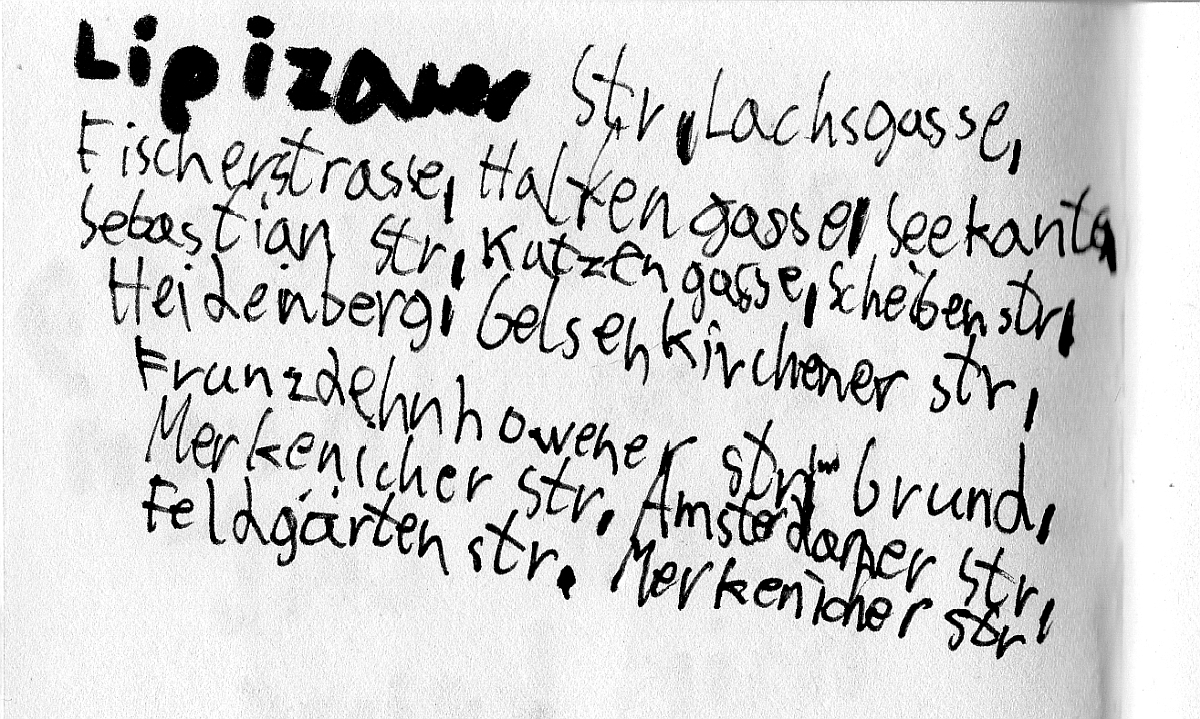 Lipizaner Str, Lachsgasse,
Fischerstrasse, Halfengasse, Seekante,
Sebastian Str, Katzengasse, Scheibenstr,
Heidenberg, Gelsenkirchener str,
Franzdehnhowener str, Grund,
Merkenicher str, Amsterdamer str,
Feldgärten str. Merkenicher str